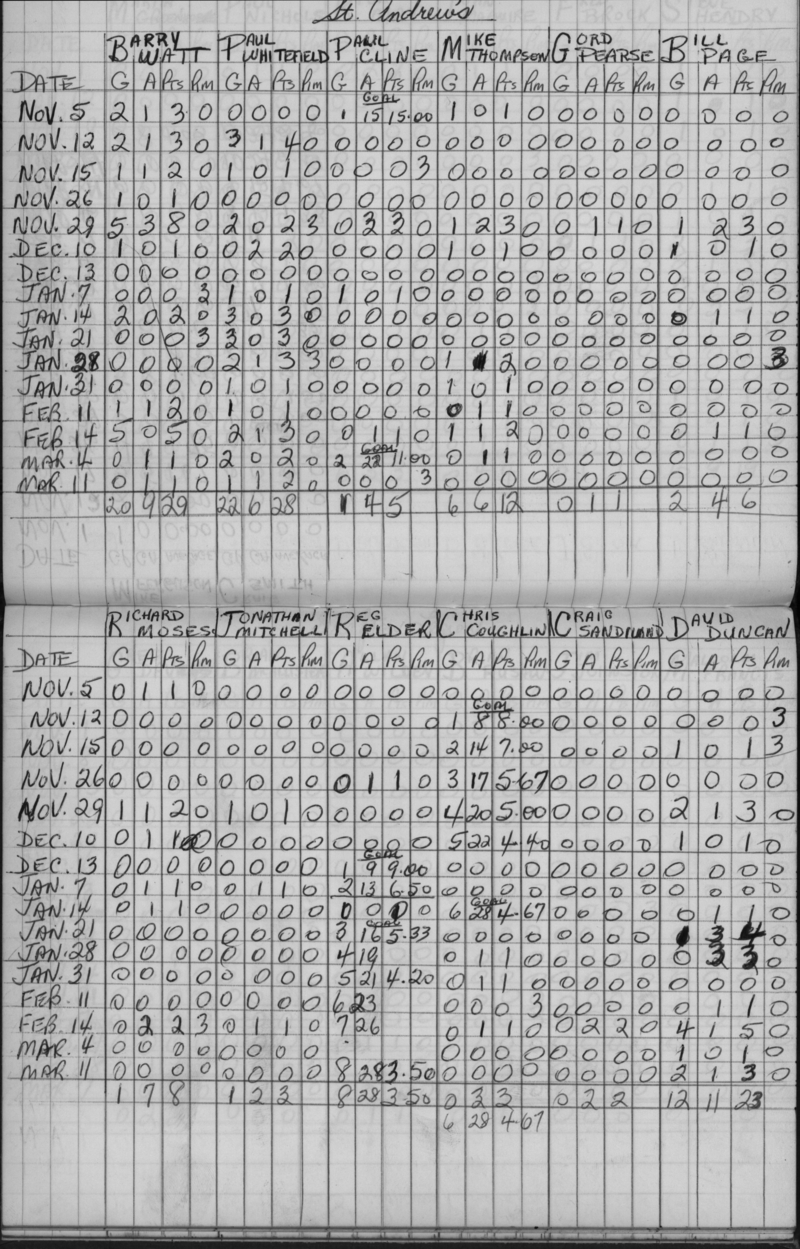 St. Andrew's
BARRY WATT PAUL WHITEFIELD PAUL CLINE MIKE THOMPSON GORD PEARSE BILL PAGE
DATE G A Pts Pim G A Pts Pim G A Pts Pim G A Pts Pim G A Pts Pim G A Pts Pim
GOAL
NOV. 5 2 1 3 0 0 0 0 0 1 15 15.00 1 0 1 0 0 0 0 0 0 0 0 0
NOV. 12 2 1 3 0 3 1 4 0 0 0 0 0 0 0 0 0 0 0 0 0 0 0 0 0
NOV. 15 1 1 2 0 1 0 1 0 0 0 0 3 0 0 0 0 0 0 0 0 0 0 0 0
NOV. 26 1 0 1 0 0 0 0 0 0 0 0 0 0 0 0 0 0 0 0 0 0 0 0 0
NOV. 29 5 3 8 0 2 0 2 3 0 3 3 0 1 2 3 0 0 1 1 0 1 2 3 0
DEC. 10 1 0 1 0 0 2 2 0 0 0 0 0 1 0 1 0 0 0 0 0 1 0 1 0
DEC. 13 0 0 0 0 0 0 0 0 0 0 0 0 0 0 0 0 0 0 0 0 0 0 0 0
JAN. 7 0 0 0 3 1 0 1 0 1 0 1 0 0 0 0 0 0 0 0 0 0 0 0 0
JAN. 14 2 0 2 0 3 0 3 0 0 0 0 0 0 0 0 0 0 0 0 0 0 1 1 0
JAN. 21 0 0 0 3 3 0 3 0 0 0 0 0 0 0 0 0 0 0 0 0 0 0 0 0
JAN. 28 0 0 0 0 2 1 3 3 0 0 0 0 1 1 2 0 0 0 0 0 0 0 0 3
JAN. 31 0 0 0 0 1 0 1 0 0 0 0 0 1 0 1 0 0 0 0 0 0 0 0 0
FEB. 11 1 1 2 0 1 0 1 0 0 0 0 0 0 1 1 0 0 0 0 0 0 0 0 0
FEB 14 5 0 5 0 2 1 3 0 0 1 1 0 1 1 2 0 0 0 0 0 0 1 1 0
GOAL
MAR. 4 0 1 1 0 2 0 2 0 2 22 11.00 0 1 1 0 0 0 0 0 0 0 0 0
MAR. 11 0 1 1 0 1 1 2 0 0 0 0 3 0 0 0 0 0 0 0 0 0 0 0 0
20 9 29 22 6 28 1 4 5 6 6 12 0 1 1 2 4 6
RICHARD MOSES JONATHAN MITCHELL REG ELDER CHRIS COUGHLIN CRAIG SANDILAND DAVID DUNCAN
DATE G A Pts Pim G A Pts Pim G A Pts Pim G A Pts Pim G A Pts Pim G A Pts Pim
NOV. 5 0 1 1 0 0 0 0 0 0 0 0 0 0 0 0 0 0 0 0 0 0 0 0 0
GOAL
NOV. 12 0 0 0 0 0 0 0 0 0 0 0 0 1 8 8.00 0 0 0 0 0 0 0 3
NOV. 15 0 0 0 0 0 0 0 0 0 0 0 0 2 14 7.00 0 0 0 0 1 0 1 3
NOV. 26 0 0 0 0 0 0 0 0 0 1 1 0 3 17 5.67 0 0 0 0 0 0 0 0
NOV. 29 1 1 2 0 1 0 1 0 0 0 0 0 4 20 5.00 0 0 0 0 2 1 3 0
DEC. 10 0 1 1 0 0 0 0 0 0 0 0 0 5 22 4.40 0 0 0 0 1 0 1 0
GOAL
DEC. 13 0 0 0 0 0 0 0 0 1 9 9.00 0 0 0 0 0 0 0 0 0 0 0 0
JAN. 7 0 1 1 0 0 1 1 0 2 13 6.50 0 0 0 0 0 0 0 0 0 0 0 0
GOAL
JAN. 14 0 1 1 0 0 0 0 0 0 0 0 0 6 28 4.67 0 0 0 0 0 1 1 0
GOAL
JAN. 21 0 0 0 0 0 0 0 0 3 16 5.33 0 0 0 0 0 0 0 0 1 3 4 0
JAN. 28 0 0 0 0 0 0 0 0 4 19 0 1 1 0 0 0 0 0 0 3 3 0
JAN. 31 0 0 0 0 0 0 0 0 5 21 4.20 0 1 1 0 0 0 0 0 0 0 0 0
FEB. 11 0 0 0 0 0 0 0 0 6 23 0 0 0 3 0 0 0 0 0 1 1 0
FEB. 14 0 2 2 3 0 1 1 0 7 26 0 1 1 0 0 2 2 0 4 1 5 0
MAR. 4 0 0 0 0 0 0 0 0 0 0 0 0 0 0 0 0 1 0 1 0
MAR. 11 0 0 0 0 0 0 0 0 8 28 3.50 0 0 0 0 0 0 0 0 2 1 3 0
1 7 8 1 2 3 8 28 3.50 0 3 3 0 2 2 12 11 23
6 28 4.67